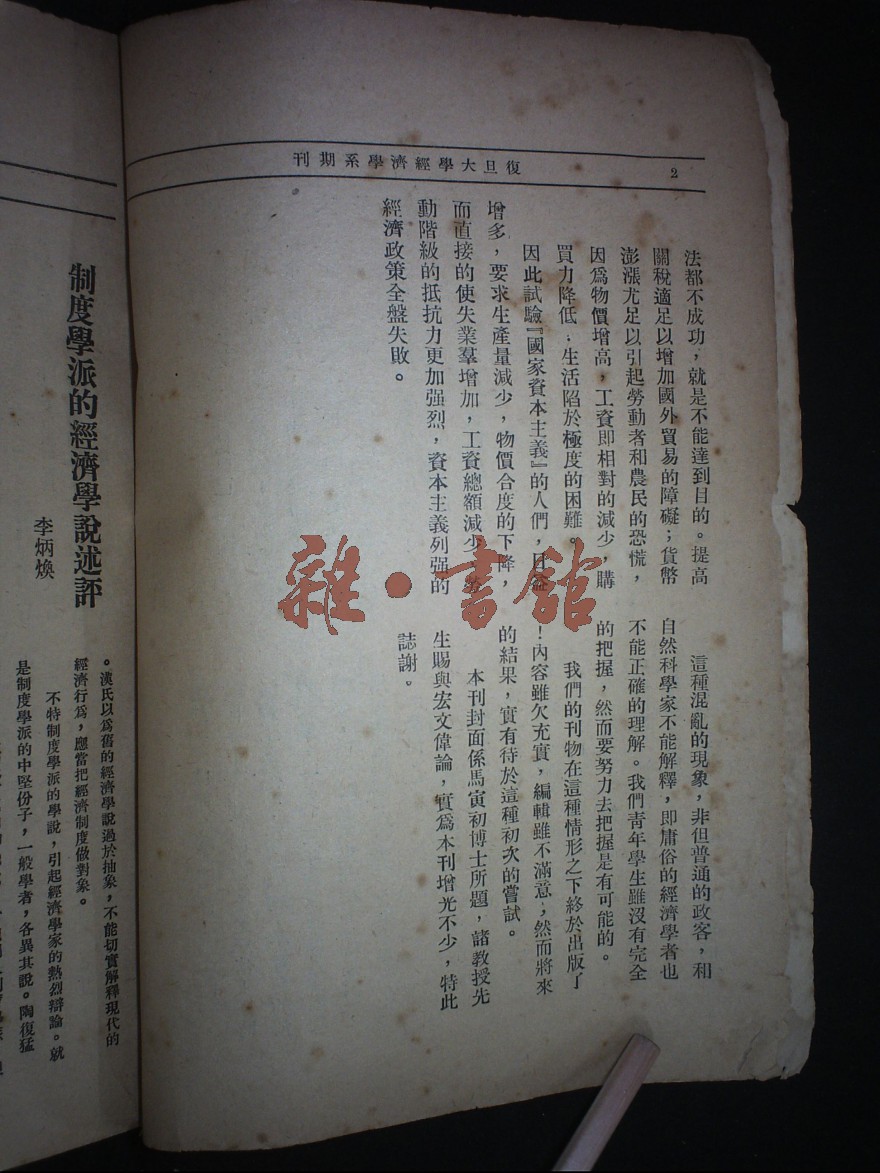 2
復旦大學經濟學系期刊
法都不成功，就是不能達到目的。提高
關稅適足以增加國外貿易的障礙；貨幣
澎漲尤足以引起勞動者和農民的恐慌，
因爲物價增高，工資即相對的減少，購
買力降低，生活陷於極度的困難。
因此試驗『國家資本主義』的人們，日益
增多，要求生產量減少，物價合度的下降，
而直接的使失業羣增加，工資總額減少，勞
動階級的抵抗力更加强烈，資本主義列强的
經濟政策全盤失敗。
這種混亂的現象，非但普通的政客，和
自然科學家不能解釋，即庸俗的經濟學者也
不能正確的理解。我們靑年學生雖沒有完全
的把握，然而要努力去把握是有可能的。
我們的刊物在這種情形之下終於出版了
！內容雖欠充實，編輯雖不滿意；然而將來
的結果，實有待於這種初次的嘗試。
本刊封面係馬寅初博士所題，諸教授先
生賜與宏文偉論，實爲本刊增光不少，特此
誌謝。
制度學派的經濟學說述評
李炳煥
。漢氏以爲舊的經濟學說過於抽象，不能切實解釋現代的
經濟行爲，應當把經濟制度做對象。
不特制度學派的學說，引起經濟學家的熱烈辯論。就
是制度學派的中堅份子，一般學者，各異其說。陶復猛
雜·書館